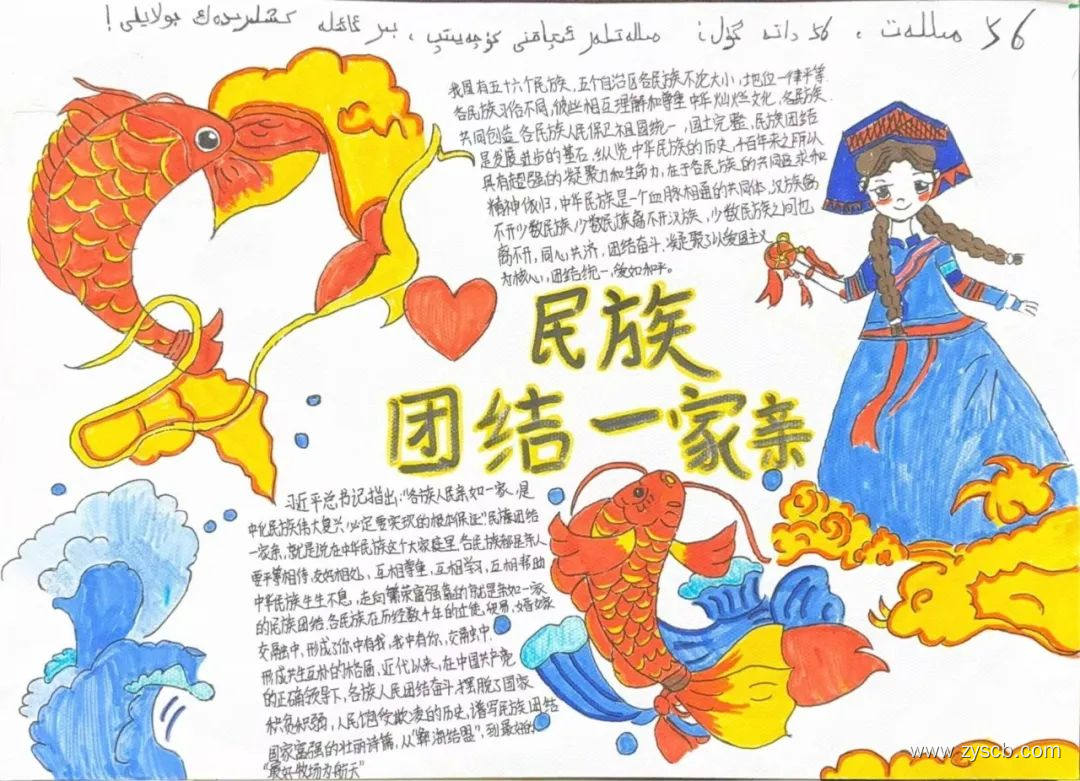 56 مىللەت ، 56 دانە گۈل؛ مىللەتلەر كۈچەيتىپ ، بىر ئائىلە كىشىلىرىدەك بولايلى!
我国有五十六个民族，五个自治区各民族不论大小，地位一律平等.
各民族习俗不同，彼此相互理解和尊重中华灿烂文化，各民族.
共同创造 各民族人民保卫祖国统一，国土完整，民族团结
是发展进步的基石，纵览中华民族的历史，千百年来之所以
具有超强的凝聚力和生命力，在于各民族的共同追求和
精神依归，中华民族是一个血脉相通的共同体，汉族离
不开少数民族，少数民族离不开汉族，少数民族之间也
离不开，同心共济，团结奋斗，凝聚了以爱国主义
为核心，团结统一，爱好和平。
民族
团结一家亲
习近平总书记指出："各族人民亲如一家，是
中华民族伟大复兴必定要实现的根本保证."民族团结
一家亲，就是说在中华民族这个大家庭里，各民族都是亲人
要平等相待，友好相处，互相尊重，互相学习，互相帮助
中华民族生生不息，走向繁荣富强靠的就是亲如一家
的民族团结，各民族在历经数千年的迁徙，贸易，婚嫁
交融中，形成了你中有我，我中有你，交融中.
形成共生互补的格局，近代以来，在中国共产党
的正确领导下，各族人民团结奋斗，摆脱了国家
积贫积弱，人民饱受欺凌的历史，谱写民族团结
国家富强的壮丽诗篇，从"彝海结盟"，到最好的
"最好牧场为航天"
www.zyscb.com